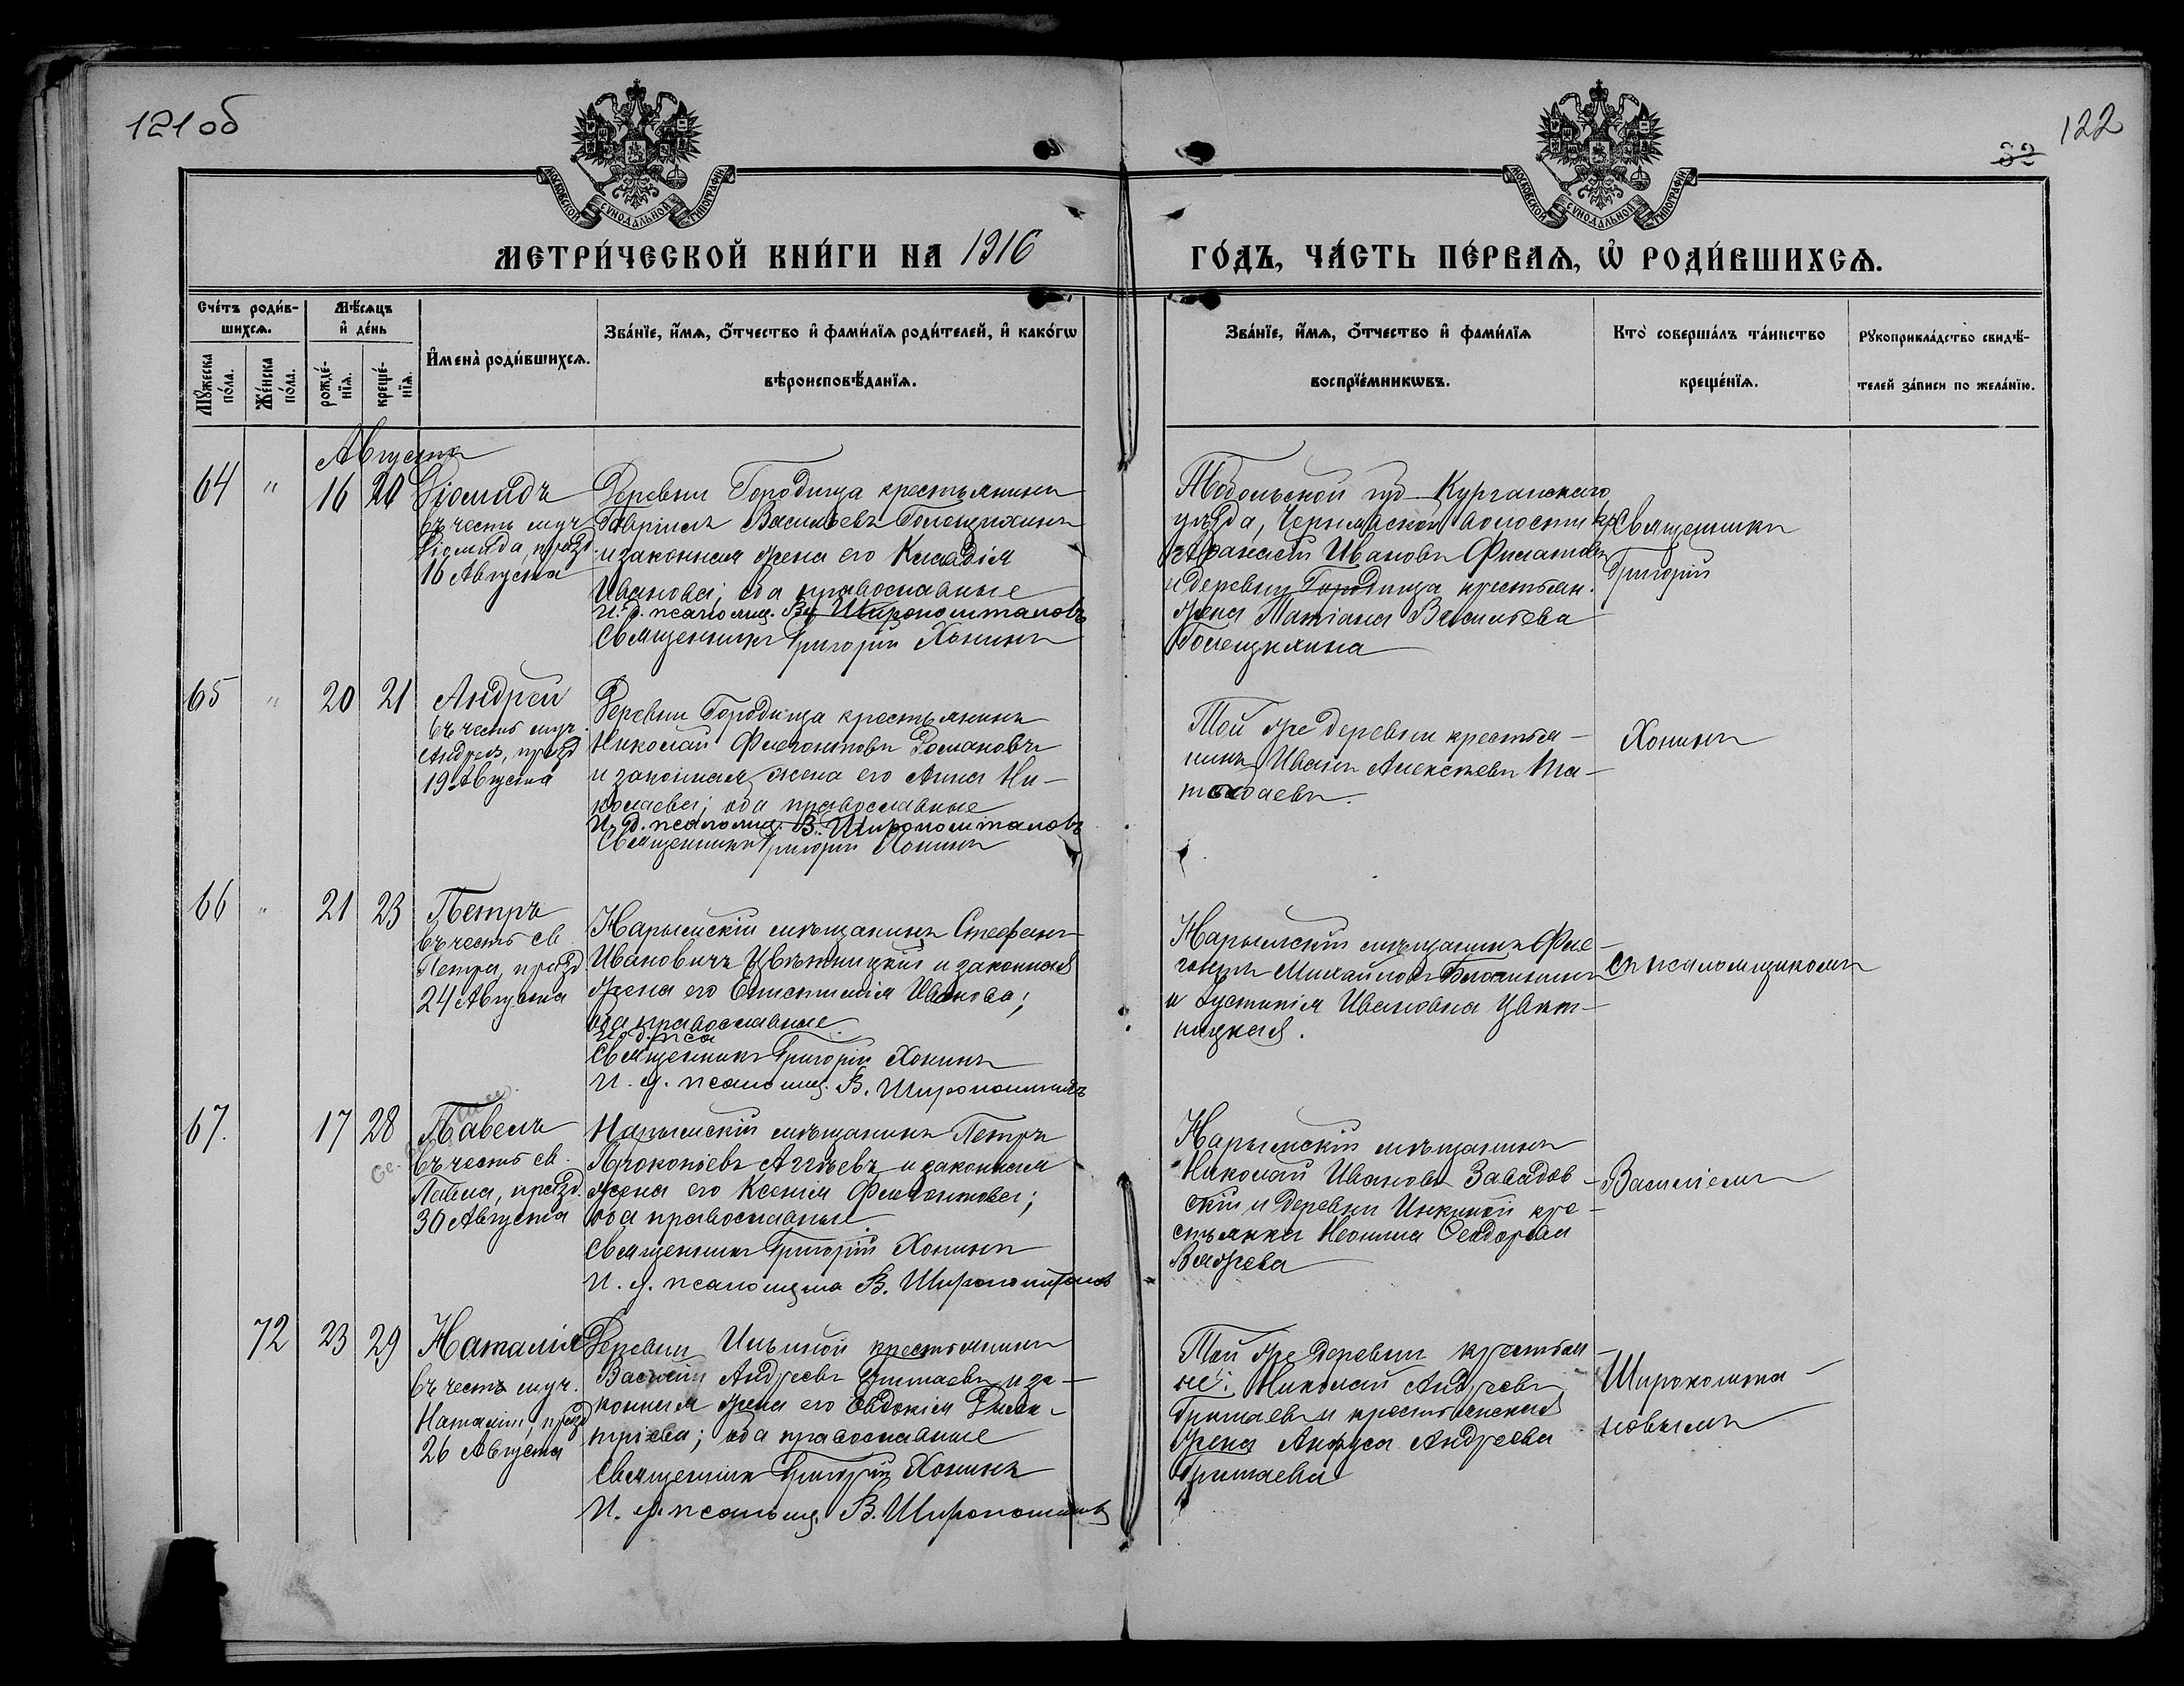 121об
122
32
МОСКОВСКОЙ СѴНОДАЛЬНОЙ ТИПОГРАФІИ
МОСКОВСКОЙ СѴНОДАЛЬНОЙ ТИПОГРАФІИ
МЕТРИ́ЧЕСКОЙ КНИ́ГИ НА 1916
ГО́ДЪ, ЧА́СТЬ ПЕ́РВАѦ, Ѡ҆ РОДИ́ВШИХСѦ.
Сче́тъ роди́в-
шихсѧ.
Мꙋ́жеска
по́ла.
Же́нска
по́ла.
Мѣ́сѧцъ
и҆ де́нь
рожде́-
нїѧ.
креще́-
нїѧ.
И҆мена̀ роди́вшихсѧ.
Зва́нїе, и҆́мѧ, ѻ҆́тчество и҆ фами́лїѧ роди́телей, и҆ како́гѡ
вѣроисповѣ́данїѧ.
Зва́нїе, и҆́мѧ, ѻ҆́тчество и҆ фами́лїѧ
воспрїе́мникѡвъ.
Кто̀ соверша́лъ та́инство
креще́нїѧ.
Рꙋкоприкла́дство свидѣ́-
телей за́писи по жела́нїю.
Августа
64 " 16 20 Діомидъ
въ честь муч.
Діомида, празд.
16 Августа
Деревни Городища крестьянинъ
Гавріилъ Васильевъ Голещихинъ
и законная жена его Клавдія
Иванова; оба православные
И. д. псаломщ. Широполшталовъ
Священникъ Григорій Хонинъ
Тобольской губ. Курганскаго
уѣзда, волости кр.
Афанасій Ивановъ Филатовъ
и деревни Городища крестьян.
жена Татіана Васильева
Голещихина
Священникъ
Григорій
65 " 20 21 Андрей
въ честь муч.
Андрея, празд.
19 Августа
Деревни Городища крестьянинъ
Николай Флегонтовъ Домановъ
и законная жена его Анна Ни-
колаева; оба православные
И. д. псаломщ. В.
Священникъ Григорій Хонинъ
Той же деревни крестья-
нинъ Иванъ Алексѣевъ
Хонинъ
66 " 21 23 Петръ
въ честь св.
Петра, празд.
24 Августа
Нарымскій мѣщанинъ Стефанъ
Ивановичъ Цвѣтницкій и законная
жена его Епистимія Иванова;
оба православные.
И. д. пса
Священникъ Григорій Хонинъ
И. д. псаломщ. В.
Нарымскій мѣщанинъ Фле-
гонтъ Михайловъ
и Іустинія Ивановна Цвѣт-
ницкая.
съ псаломщикомъ
67. 17 28 Павелъ
въ честь св.
Павла, празд.
30 Августа
Нарымскій мѣщанинъ Петръ
Прокопіевъ и законная
жена его Ксенія Флегонтова;
оба православные.
Священникъ Григорій Хонинъ
И. д. псаломщика В.
Нарымскій мѣщанинъ
Николай Ивановъ Завадов-
скій и деревни Инкиной кре-
стьянка Неонила Ѳеодорова
Василіемъ
72 23 29 Наталія
въ честь муч.
Наталіи, празд.
26 Августа
Деревни Ильиной крестьянинъ
Василій Андреевъ Гришаевъ и за-
конная жена его Евдокія Дими-
тріева; оба православные
Священникъ Григорій Хонинъ
И. д. псаломщ. В.
Той же деревни крестьян-
не: Николай Андреевъ
Гришаевъ и крестьянская
жена Анфуса Андреева
Гришаева
Широполшта-
новымъ